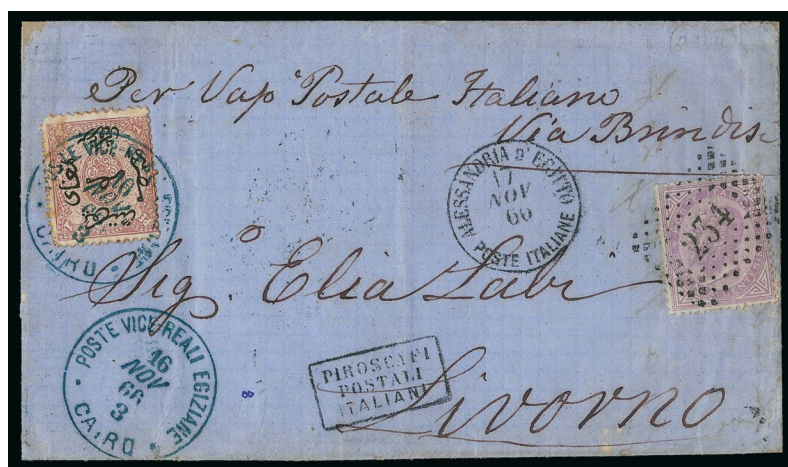 Per Vap Postale Italiano
Via Brindisi
ALESSANDRIA D'EGITTO
17
NOV
66
POSTE ITALIANE
234
CAIRO
Sig.
Elia
Livorno
POSTE VICE REALI EGIZIANE
16
NOV
66
3
CAIRO
8
PIROSCAFI
POSTALI
ITALIANI